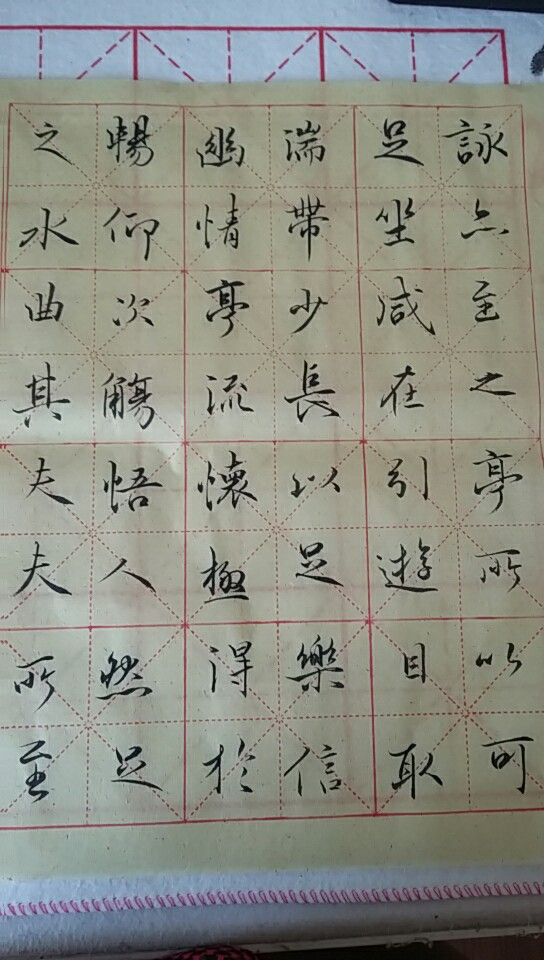 詠亦至之亭所以可
足坐咸在引遊目取
湍帶少長以足樂信
幽情亭流懷極得於
暢仰次觴悟人然足
之水曲其夫夫所至